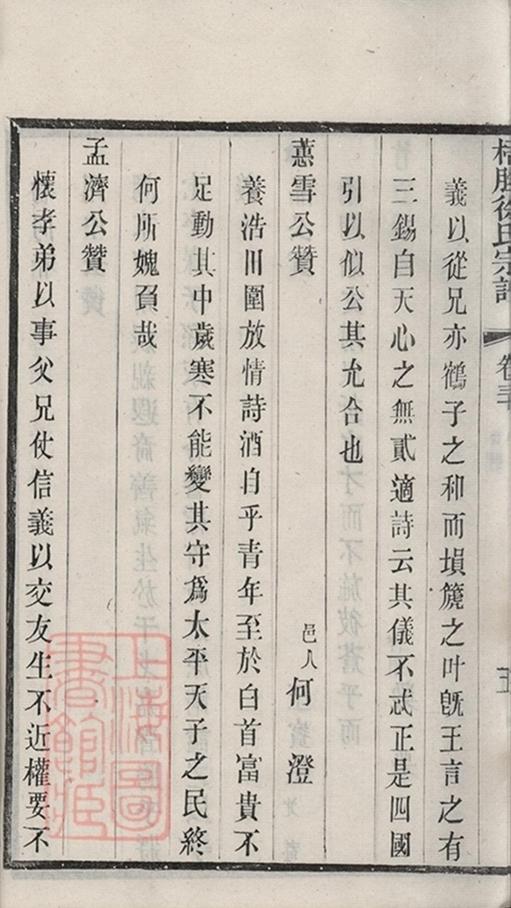 徐氏宗譜
義以從兄亦鶴子之和而塤篪之叶旣王言之有
三錫自天心之無貳適詩云其儀不忒正是四國
引以似公其允合也
蕙雪公贊
邑人何澄
養浩田園放情詩酒自乎青年至於白首富貴不
足動其中歲寒不能變其守為太平天子之民終
何所媿負哉
孟濟公贊
懷孝弟以事父兄仗信義以交友生不近權要不
上海圖書館